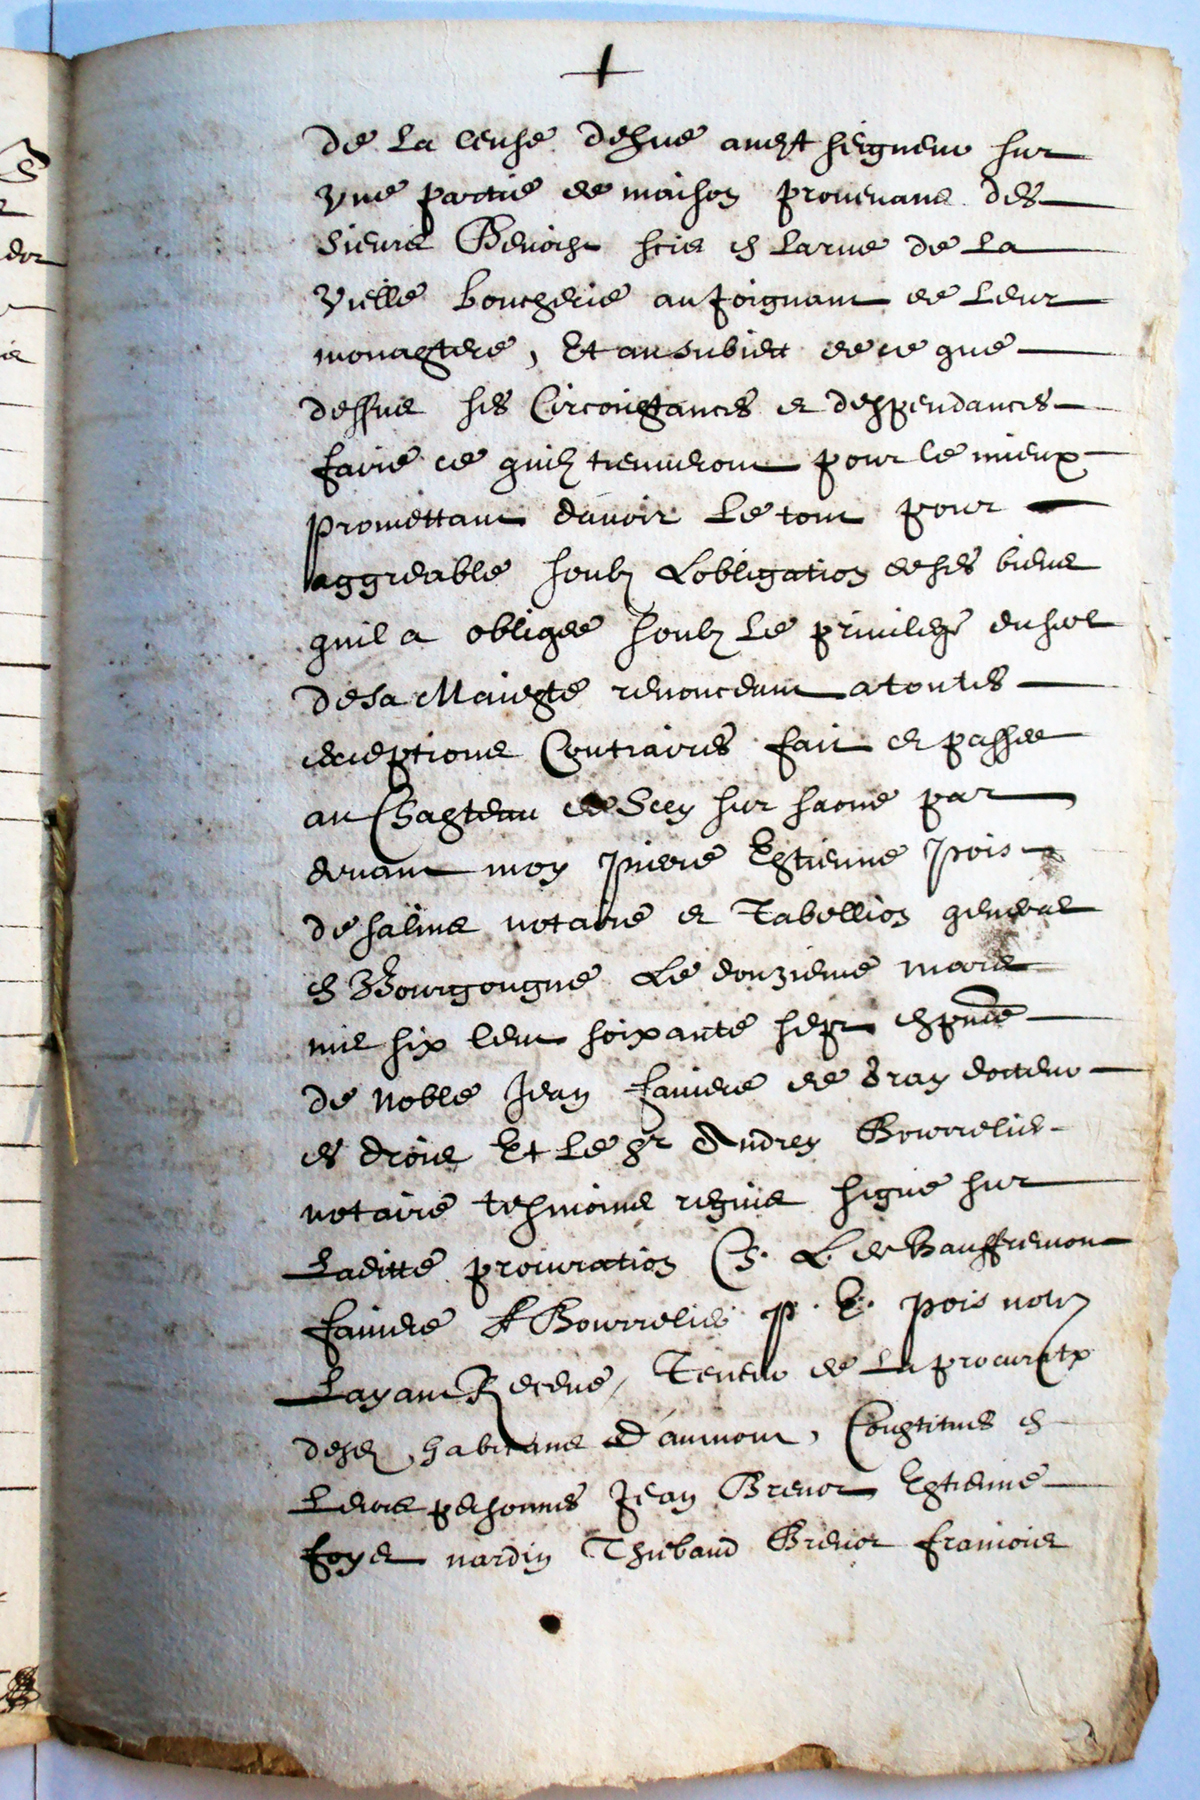 +
de La Cense dehue audit seigneur sur
Vne partie de maison prouenant des
Sieurs Benoist size en larue de La
Vieille boucherie au Joignant de Leur
monastere, Et au subiect de ce que
dessus ses Circonstances et despendances
faire ce quilz treuueront pour le mieux
promettant dauoir Le tout pour
aggreable soubz Lobligation de ses biens
quil a obligee soubz Le priuilege du seel
de sa Maiesté renonceant a toutes
exceptions Contraires fait et passee
au Chasteau de Scey sur saone par
deuant moy pierre Estienne pois
de salins notaire et Tabellion general
en Bourgongne Le douzieme mars
mil six Cent soixante sept en pnce
de Noble Jean fauiere de Bray docteur
es drois Et Le Sr Andrey Bourrelier
notaire tesmoins requis signé sur
Laditte procuration C. L. de Bauffremont
fauiere A Bourrelier p. E. pois notr
Layant Receue, Teneur de La procuratn
desdz habitans d'aumont, Constitues en
Leurs personnes Jean Brenot Estienne
foyet nardin Thiebaud Brenot francois